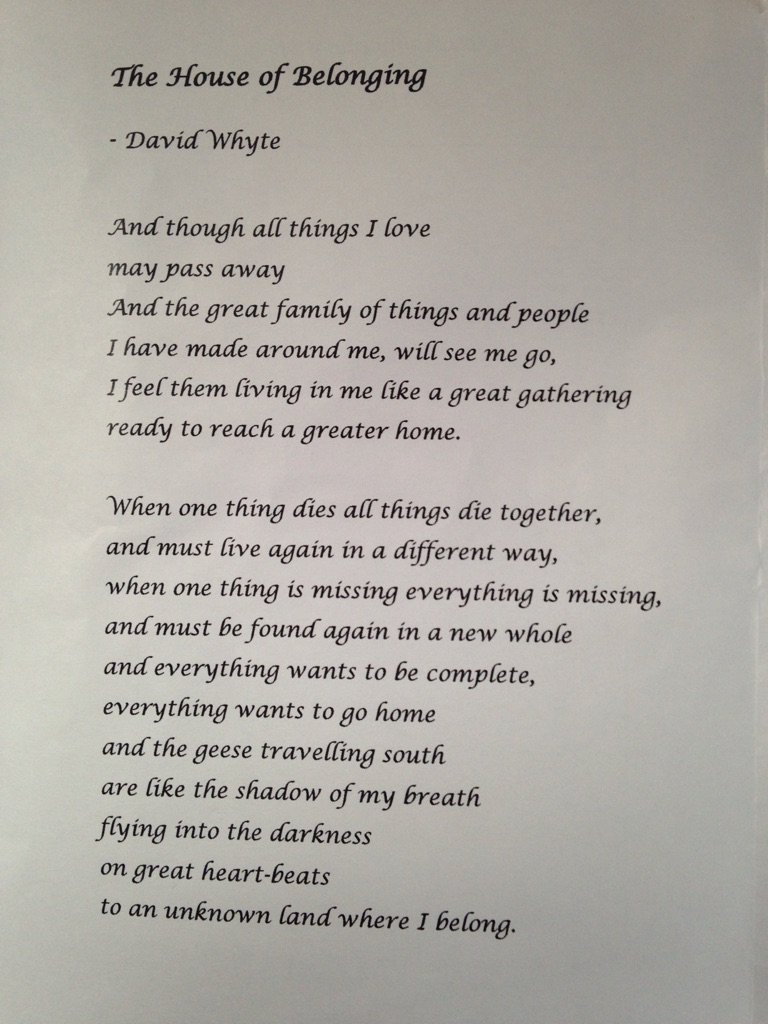 The House of Belonging
- David Whyte
And though all things I love
may pass away
And the great family of things and people
I have made around me, will see me go,
I feel them living in me like a great gathering
ready to reach a greater home.
When one thing dies all things die together,
and must live again in a different way,
when one thing is missing everything is missing,
and must be found again in a new whole
and everything wants to be complete,
everything wants to go home
and the geese travelling south
are like the shadow of my breath
flying into the darkness
on great heart-beats
to an unknown land where I belong.